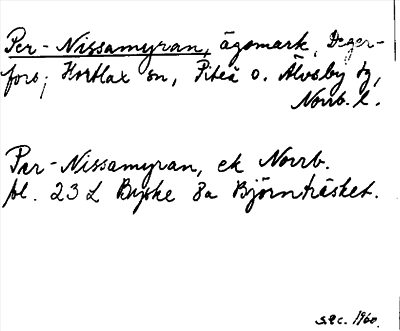 Per-Nissamyran, ägomark, Deger-
fors; Hortlax sn, Piteå o. Älvsby tg,
Norrb. l.
Per-Nissamyran, ek Norrb.
bl. 23 L Byske 8a Björnträsket.
s.e.c. 1960.